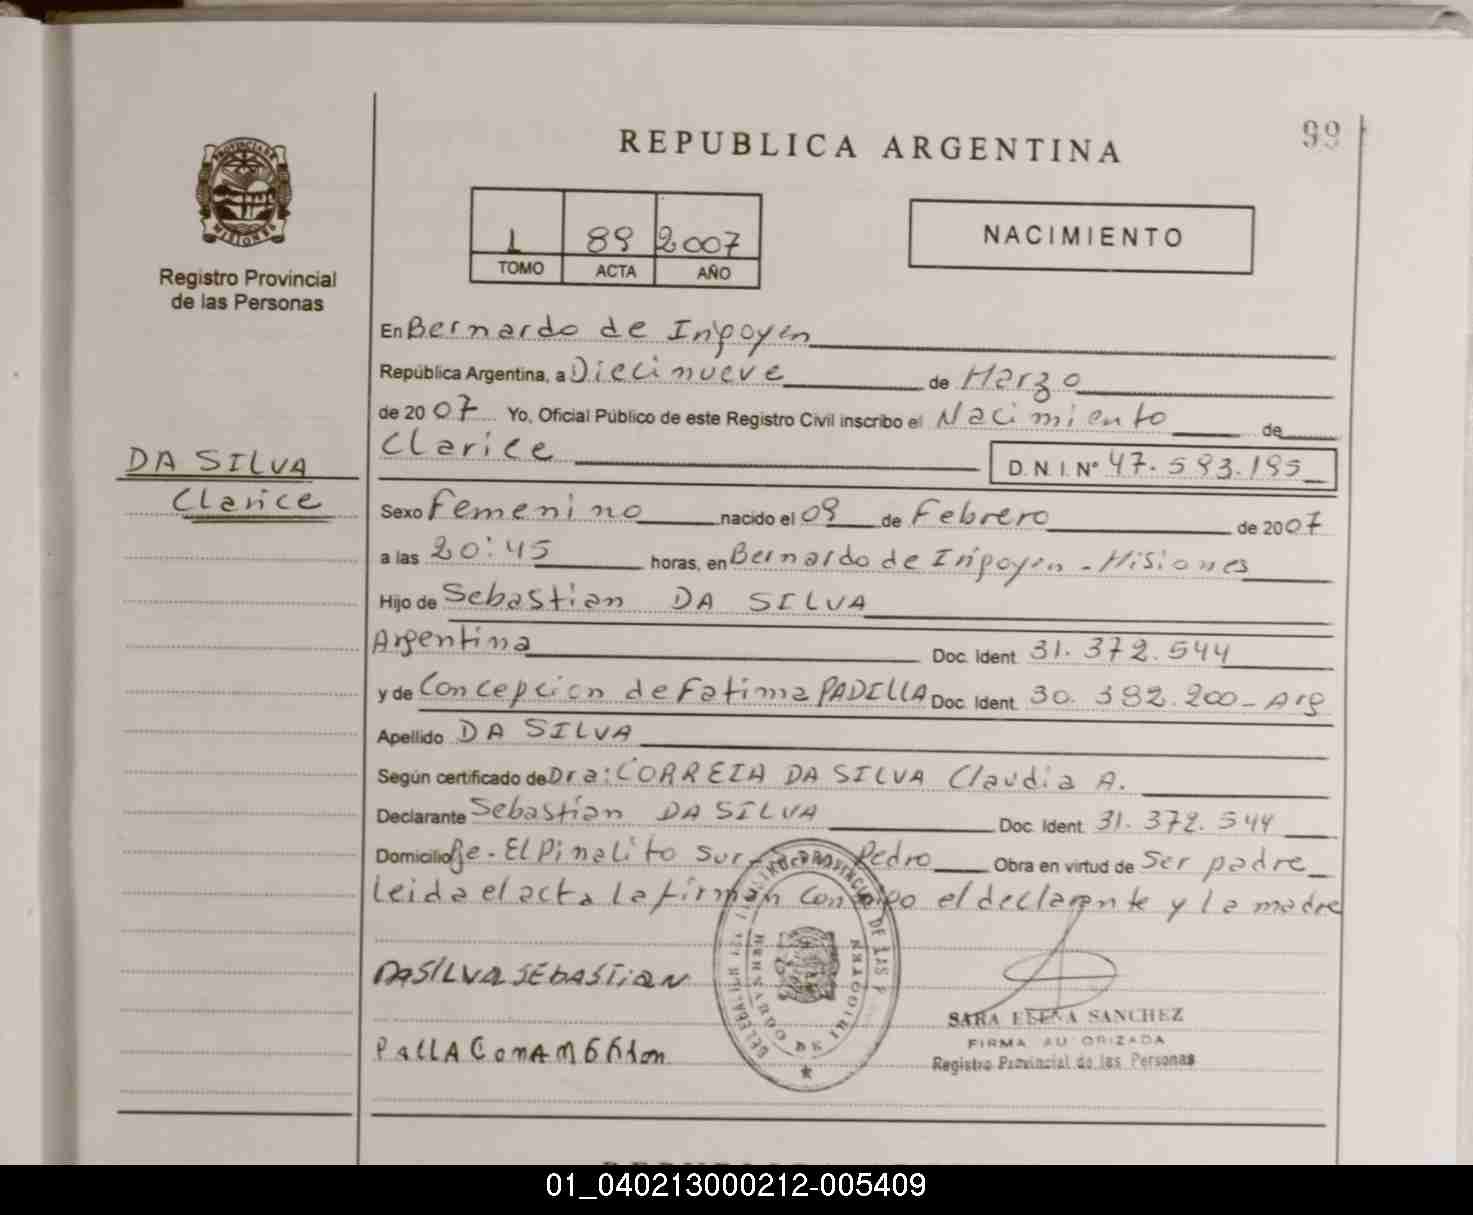 99
REPUBLICA ARGENTINA
PROVINCIA DE
MISIONES
Registro Provincial
de las Personas
1 89 2007
TOMO ACTA AÑO
NACIMIENTO
En Bernardo de Irigoyen
República Argentina, a Diecinueve de Marzo
de 2007 Yo, Oficial Público de este Registro Civil inscribo el Nacimiento de
Clarice D. N. I. Nº 47.593.195
DA SILVA
Clarice
Sexo Femenino nacido el 09 de Febrero de 2007
a las 20:45 horas, en Bernardo de Irigoyen - Misiones
Hijo de Sebastian DA SILVA
Argentina Doc. Ident. 31.372.544
y de Concepcion de Fatima PADILLA Doc. Ident. 30.392.200 - Arg
Apellido DA SILVA
Según certificado de Dra: CORREIA DA SILVA Claudia A.
Declarante Sebastian DA SILVA Doc. Ident. 31.372.544
Domicilio El Pinalito Sur Pedro Obra en virtud de Ser padre
Leida el acta la firman conmigo el declarante y la madre
DASILVA SEBASTIAN
SARA ELENA SANCHEZ
FIRMA AUTORIZADA
Registro Provincial de las Personas
01_040213000212-005409